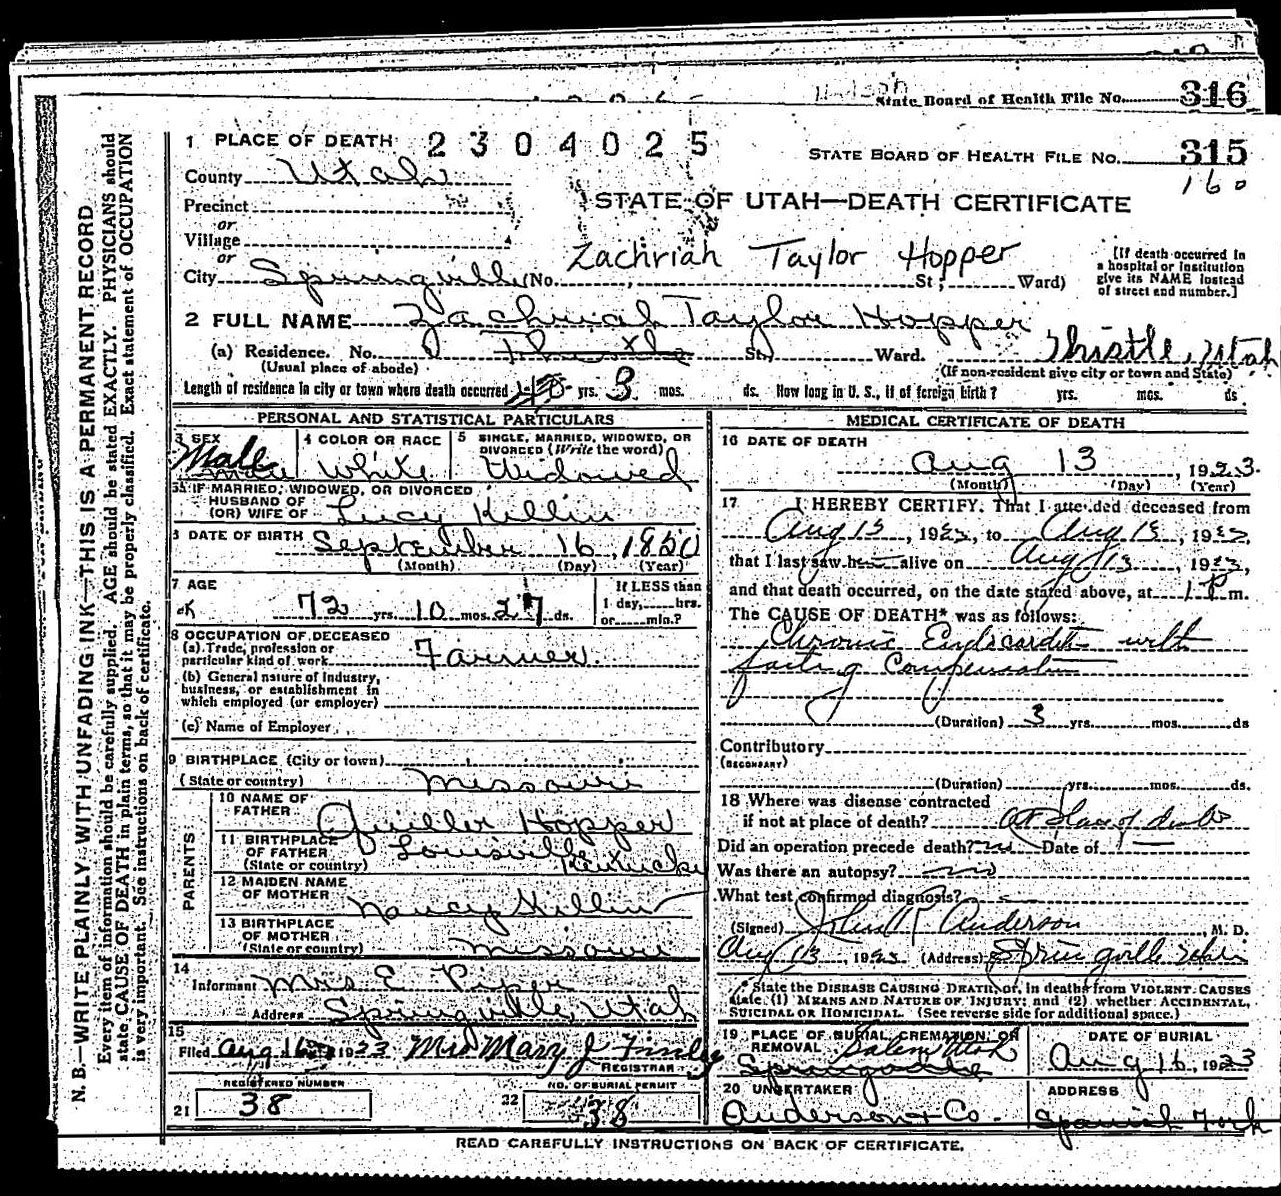 State Board of Health File No. 316
1 PLACE OF DEATH 2304025
STATE BOARD OF HEALTH FILE NO. 315
160
County Utah
Precinct
or
Village
or
STATE OF UTAH—DEATH CERTIFICATE
Zachriah Taylor Hopper
City Springville (No. St; Ward)
[If death occurred in
a hospital or institution
give its NAME instead
of street and number.]
2 FULL NAME Zachriah Taylor Hopper
(a) Residence. No. Thistle St. Ward. Thistle, Utah
(Usual place of abode) (If non-resident give city or town and State)
Length of residence in city or town where death occurred yrs. 3 mos. ds. How long in U. S., if of foreign birth? yrs. mos. ds.
PERSONAL AND STATISTICAL PARTICULARS
3 SEX
Male
4 COLOR OR RACE
White
5 SINGLE, MARRIED, WIDOWED, OR
DIVORCED (Write the word)
Widowed
5a IF MARRIED, WIDOWED, OR DIVORCED
HUSBAND OF
(OR) WIFE OF Lucy Killin
6 DATE OF BIRTH September 16, 1850
(Month) (Day) (Year)
7 AGE
72 yrs. 10 mos. 27 ds.
If LESS than
1 day, hrs.
or min.?
8 OCCUPATION OF DECEASED
(a) Trade, profession or
particular kind of work Farmer.
(b) General nature of industry,
business, or establishment in
which employed (or employer)
(c) Name of Employer
9 BIRTHPLACE (City or town)
(State or country) Missouri
PARENTS
10 NAME OF
FATHER Hopper
11 BIRTHPLACE
OF FATHER
(State or country) Louisville Kentucky
12 MAIDEN NAME
OF MOTHER Nancy Killin
13 BIRTHPLACE
OF MOTHER
(State or country) Missouri
14
Informant Mrs E. Piper
Address Springville, Utah
15
Filed Aug 16 1923 Mrs Mary J Finley
REGISTRAR
REGISTERED NUMBER
21 38
NO. OF BURIAL PERMIT
22 38
MEDICAL CERTIFICATE OF DEATH
16 DATE OF DEATH
Aug 13, 1923.
(Month) (Day) (Year)
17 I HEREBY CERTIFY. That I attended deceased from
Aug 13, 1923, to Aug 13, 1923,
that I last saw h alive on Aug 13, 1923,
and that death occurred, on the date stated above, at 1 P m.
The CAUSE OF DEATH* was as follows:
Chronic Endocarditis with
failing Compensation
(Duration) 3 yrs. mos. ds
Contributory
(SECONDARY)
(Duration) yrs. mos. ds.
18 Where was disease contracted
if not at place of death? at place of death
Did an operation precede death? no Date of
Was there an autopsy? no
What test confirmed diagnosis?
(Signed) John R. Anderson, M. D.
Aug 13, 1923 (Address) Springville Utah
*State the DISEASE CAUSING DEATH, or, in deaths from VIOLENT CAUSES
state (1) MEANS AND NATURE OF INJURY; and (2) whether ACCIDENTAL,
SUICIDAL OR HOMICIDAL. (See reverse side for additional space.)
19 PLACE OF BURIAL, CREMATION, OR
REMOVAL Salem Utah
Springville
DATE OF BURIAL
Aug 16, 1923
20 UNDERTAKER
Anderson & Co.
ADDRESS
Spanish Fork
READ CAREFULLY INSTRUCTIONS ON BACK OF CERTIFICATE.
N. B.—WRITE PLAINLY WITH UNFADING INK—THIS IS A PERMANENT RECORD
Every item of information should be carefully supplied. AGE should be stated EXACTLY. PHYSICIANS should
state CAUSE OF DEATH in plain terms, so that it may be properly classified. Exact statement of OCCUPATION
is very important. See instructions on back of certificate.